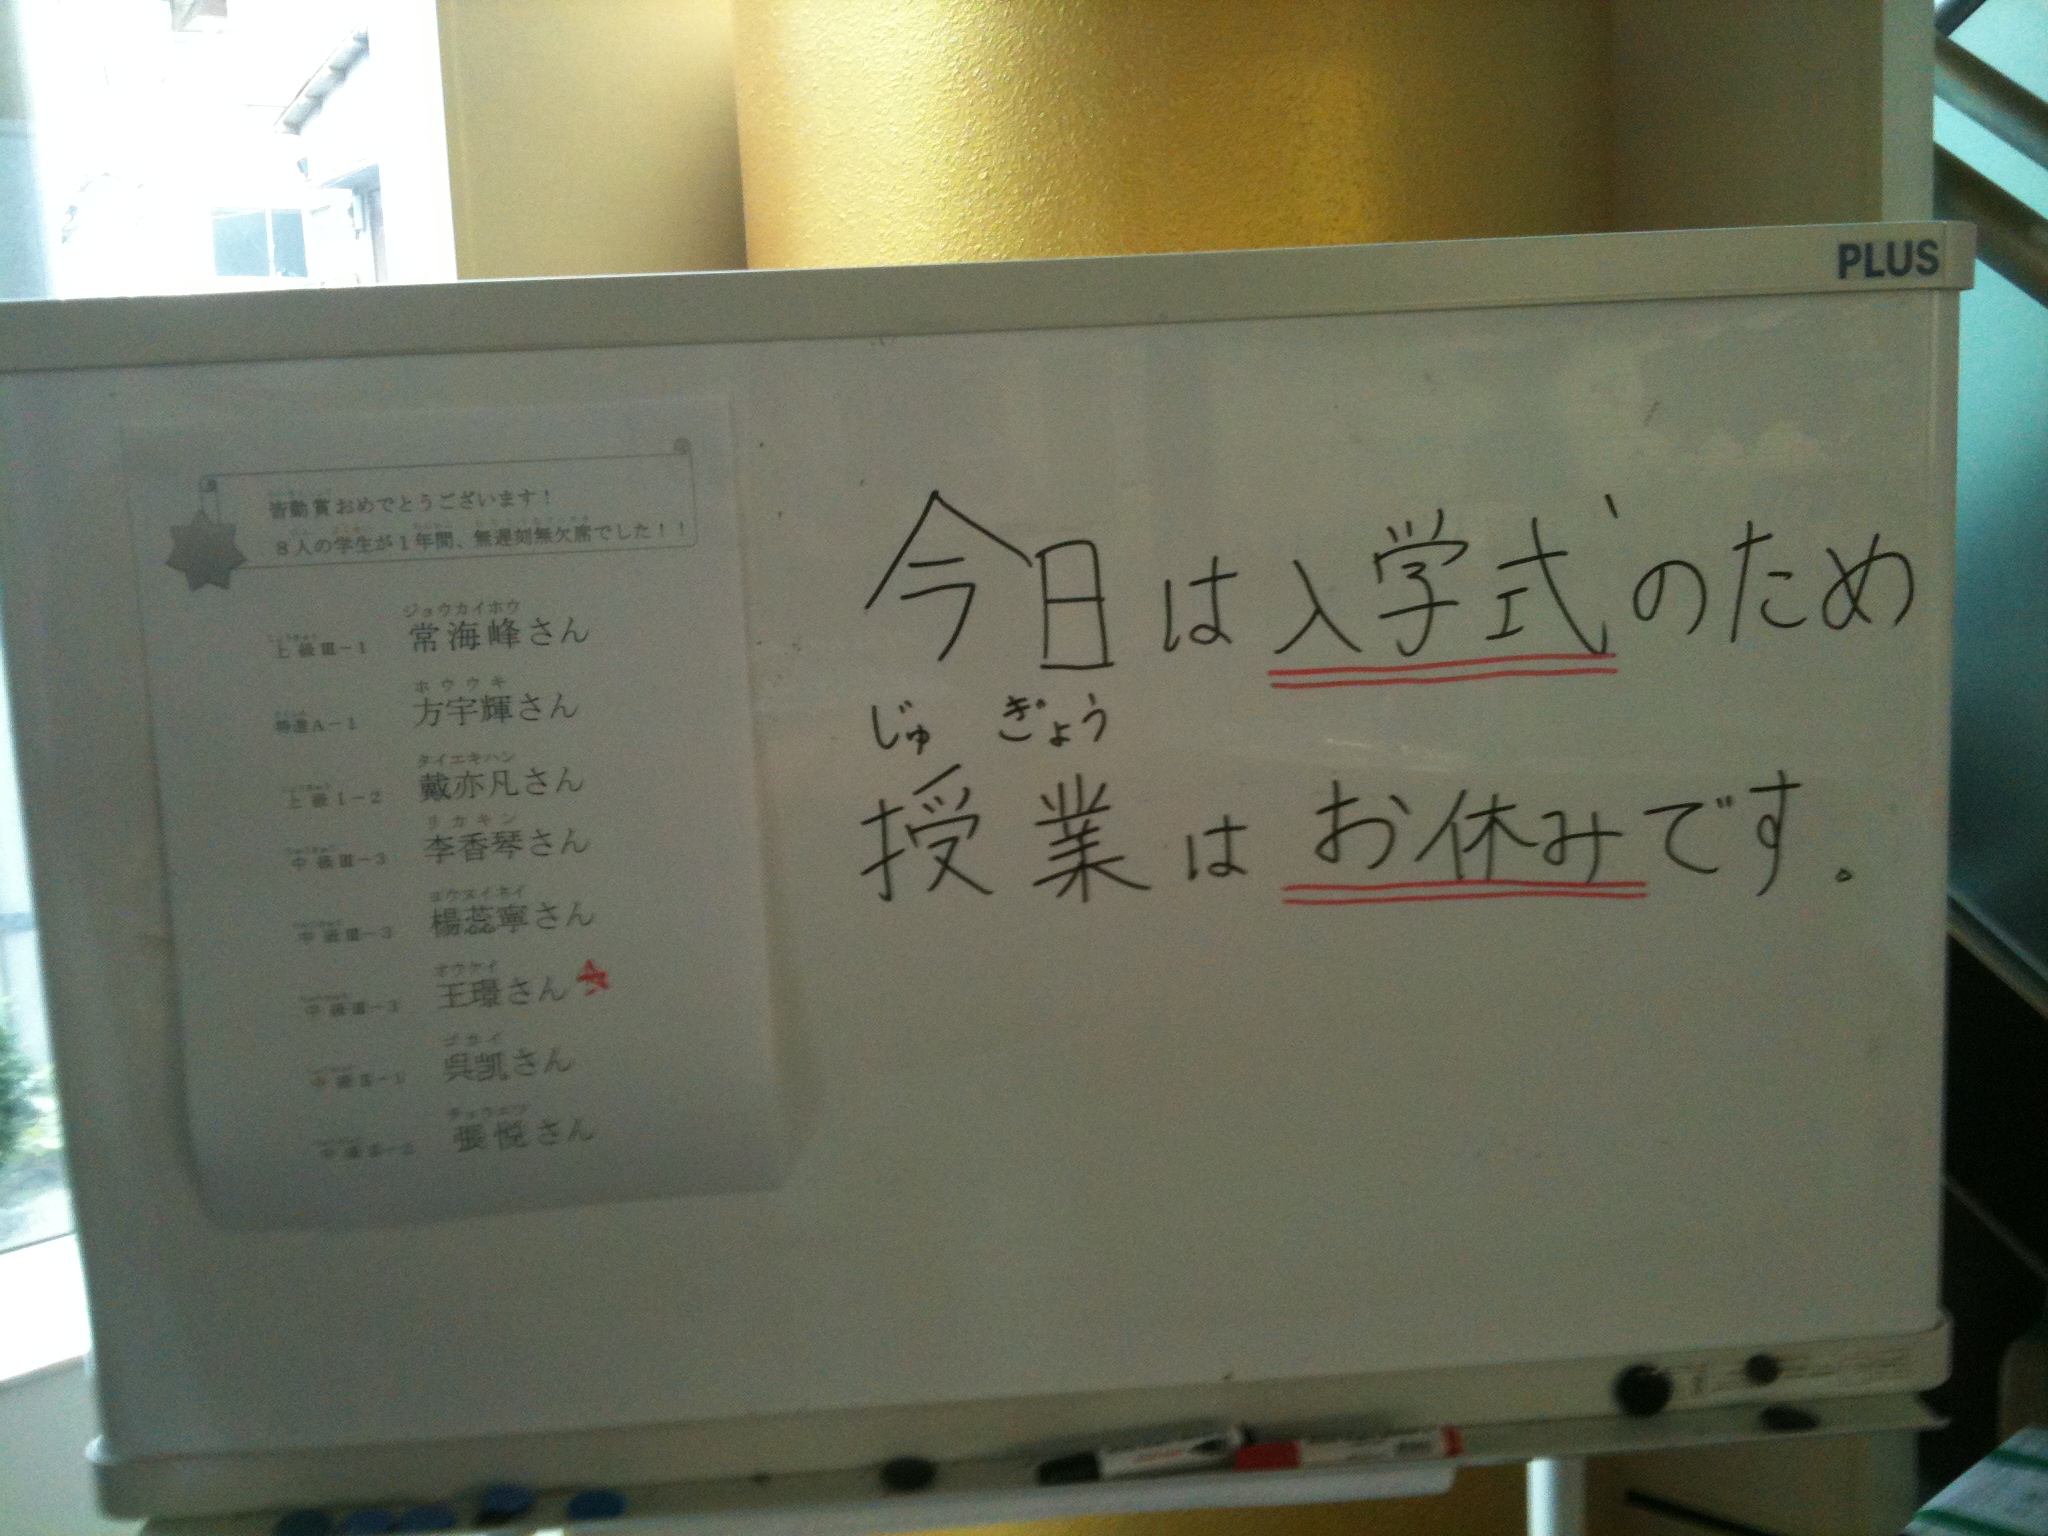 PLUS
皆勤賞おめでとうございます！
８人の学生が１年間、無遅刻無欠席でした！！
ジョウカイホウ
上級Ⅲ－１ 常海峰さん
ホウウキ
特進A－１ 方宇輝さん
タイエキハン
上級１－２ 戴亦凡さん
リカキン
中級Ⅲ－３ 李香琴さん
ヨウズイネイ
中級Ⅲ－３ 楊蕊寧さん
オウケイ
中級Ⅲ－３ 王璟さん
ゴガイ
呉凱さん
チョウエツ
張悦さん
今日は入学式のため
じゅ ぎょう
授業はお休みです。